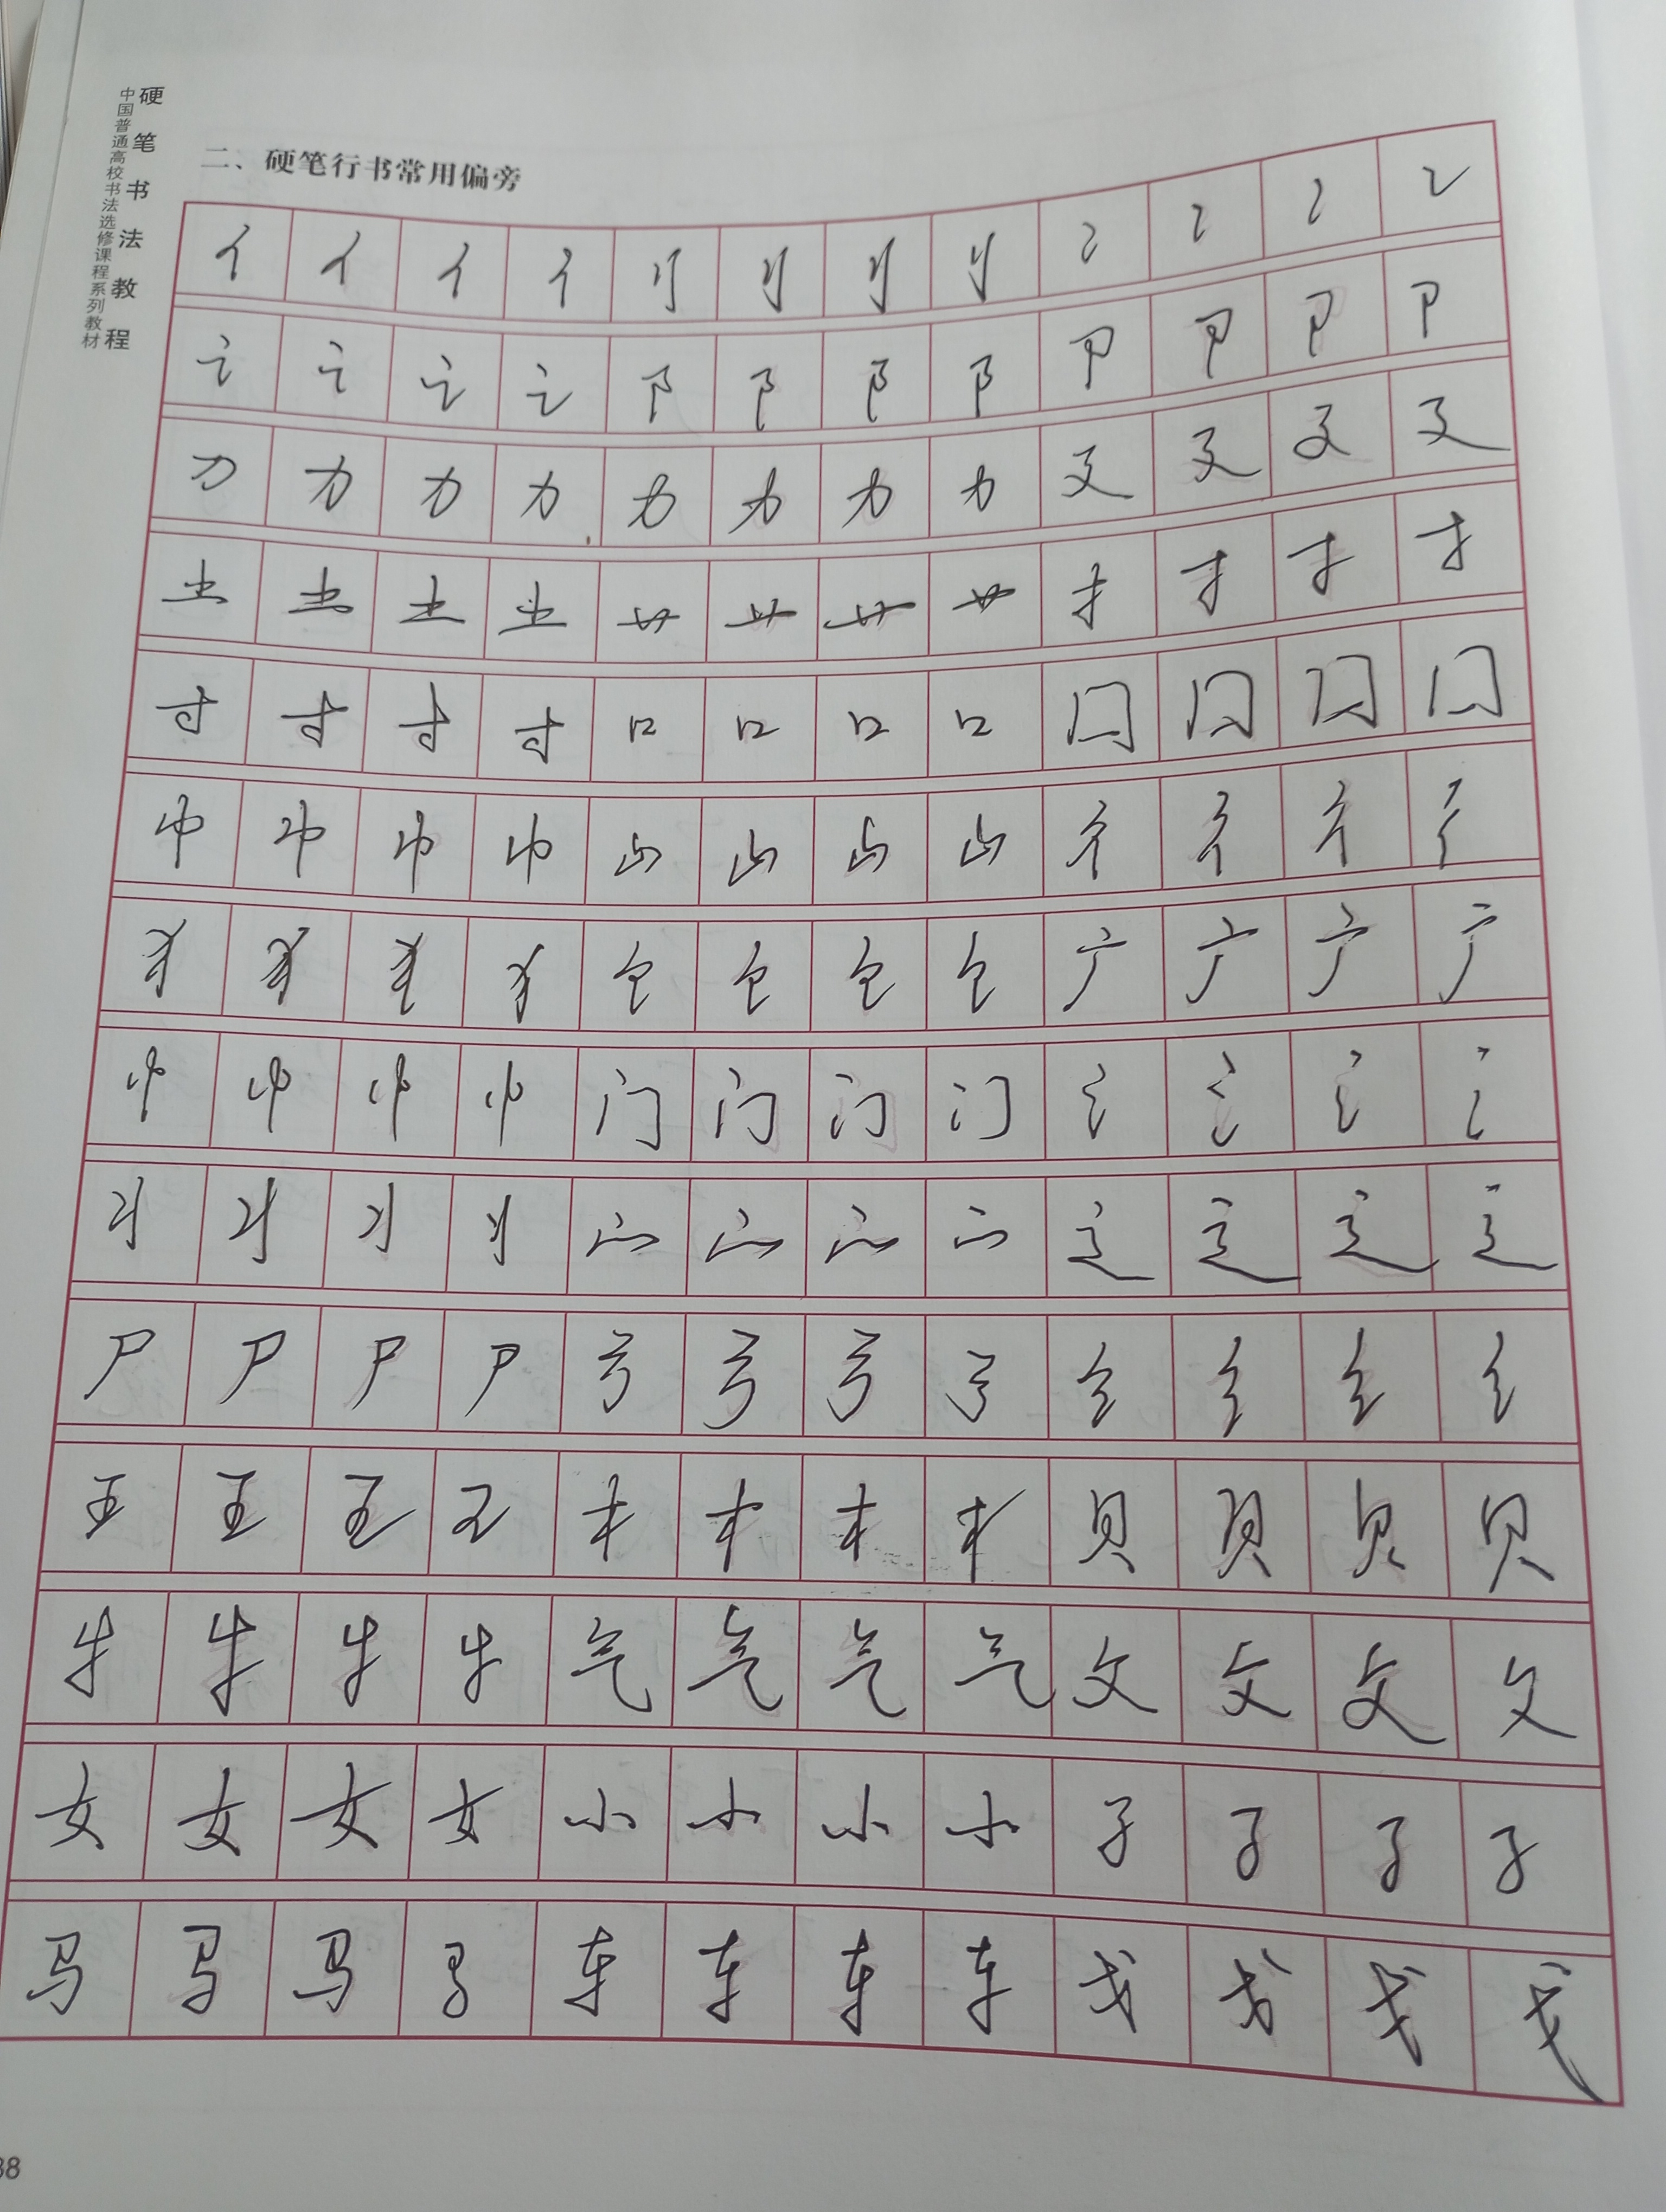 硬笔书法教程
中国普通高校书法选修课程系列教材
二、硬笔行书常用偏旁
亻 亻 亻 亻 刂 刂 刂 刂 冫 冫 冫 冫
讠 讠 讠 讠 阝 阝 阝 阝 卩 卩 卩 卩
力 力 力 力 力 力 力 力 廴 廴 廴 廴
土 土 土 土 艹 艹 艹 艹 扌 扌 扌 扌
寸 寸 寸 寸 口 口 口 口 囗 囗 囗 囗
巾 巾 巾 巾 山 山 山 山 彳 彳 彳 彳
犭 犭 犭 犭 饣 饣 饣 饣 广 广 广 广
忄 忄 忄 忄 门 门 门 门 氵 氵 氵 氵
丬 丬 丬 丬 宀 宀 宀 宀 辶 辶 辶 辶
尸 尸 尸 尸 弓 弓 弓 弓 纟 纟 纟 纟
王 王 王 王 木 木 木 木 贝 贝 贝 贝
牛 牛 牛 牛 气 气 气 气 攵 攵 攵 攵
女 女 女 女 小 小 小 小 子 子 子 子
马 马 马 马 车 车 车 车 戈 戈 戈 戈
38